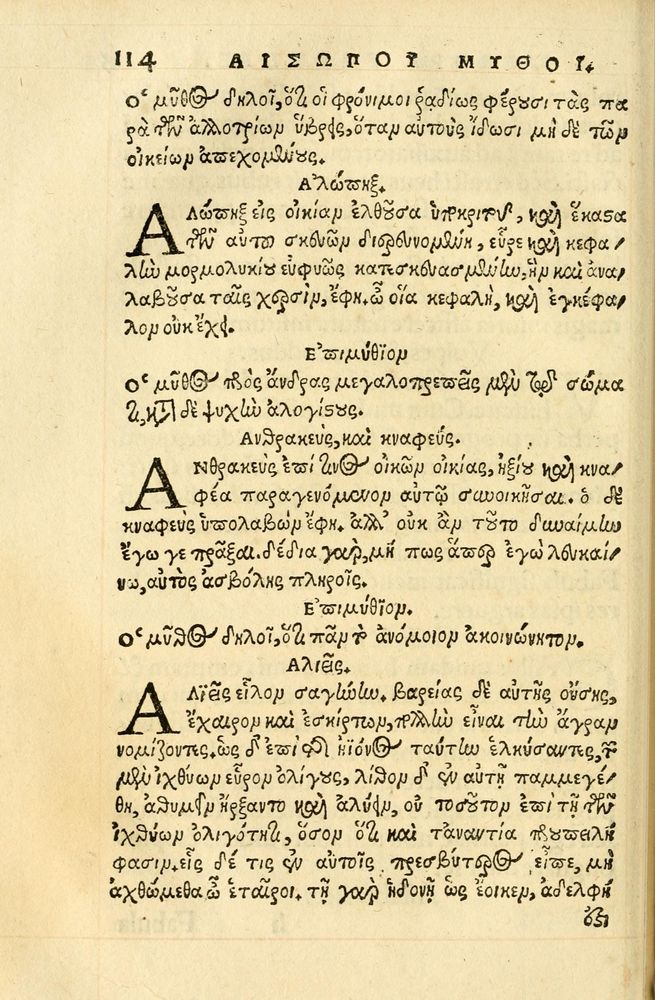 114 ΑΙΣΩΠΟΥ ΜΥΘΟΙ.
Ὁ μῦθος δηλοῖ, ὅτι οἱ φρόνιμοι ῥᾳδίως φέρουσι τὰς πα
ρὰ τῶν ἀλλοτρίων ὕβρεις, ὅταν αὐτοὺς ἴδωσι μὴ δὲ τῶν
οἰκείων ἀπεχομένους.
Ἀλώπηξ.
ΑΛώπηξ εἰς οἰκίαν ἐλθοῦσα ὑποκριτοῦ, καὶ ἕκαστα
τῶν αὐτοῦ σκευῶν διερευνομένη, εὗρε καὶ κεφα/
λὴν μορμολυκίου εὐφυῶς κατεσκευασμένην, ἣν καὶ ἀνα/
λαβοῦσα ταῖς χερσὶν, ἔφη. ὦ οἵα κεφαλὴ, καὶ ἐγκέφα/
λον οὐκ ἔχει.
Ἐπιμύθιον
Ὁ μῦθος πρὸς ἄνδρας μεγαλοπρεπεῖς μὲν τῷ σώμα
τι, κατὰ δὲ ψυχὴν ἀλογίστους.
Ἀνθρακεὺς, καὶ κναφεύς.
ΑΝθρακεὺς ἐπί τινος οἰκῶν οἰκίας, ἠξίου καὶ κνα/
φέα παραγενόμενον αὐτῷ συνοικῆσαι. ὁ δὲ
κναφεὺς ὑπολαβὼν ἔφη. ἀλλ' οὐκ ἂν τοῦτο δυναίμην
ἔγω γε πρᾶξαι. δέδια γὰρ, μή πως ἅπερ ἐγὼ λευκαί/
νω, αὐτὸς ἀσβόλης πληροῖς.
Ἐπιμύθιον.
Ὁ μῦθος δηλοῖ, ὅτι πᾶν τὸ ἀνόμοιον ἀκοινώνητον.
Ἁλιεῖς.
ΑΛιεῖς εἷλον σαγήνην. βαρείας δὲ αὐτῆς οὔσης,
ἔχαιρον καὶ ἐσκίρτων, πολλὴν εἶναι τὴν ἄγραν
νομίζοντες. ὡς δ' ἐπὶ τῆς ἠϊόνος ταύτην ἑλκύσαντες, τῶν
μὲν ἰχθύων εὗρον ὀλίγους, λίθον δ' ἐν αὐτῇ παμμεγέ/
θη, ἀθυμεῖν ἤρξαντο καὶ ἀλύειν, οὐ τοσοῦτον ἐπὶ τῇ τῶν
ἰχθύων ὀλιγότητι, ὅσον ὅτι καὶ τἀναντία προυπειλή
φασιν. εἷς δέ τις ἐν αὐτοῖς πρεσβύτερος εἶπε, μὴ
ἀχθώμεθα ὦ ἑταῖροι. τῇ γὰρ ἡδονῇ ὡς ἔοικεν, ἀδελφή